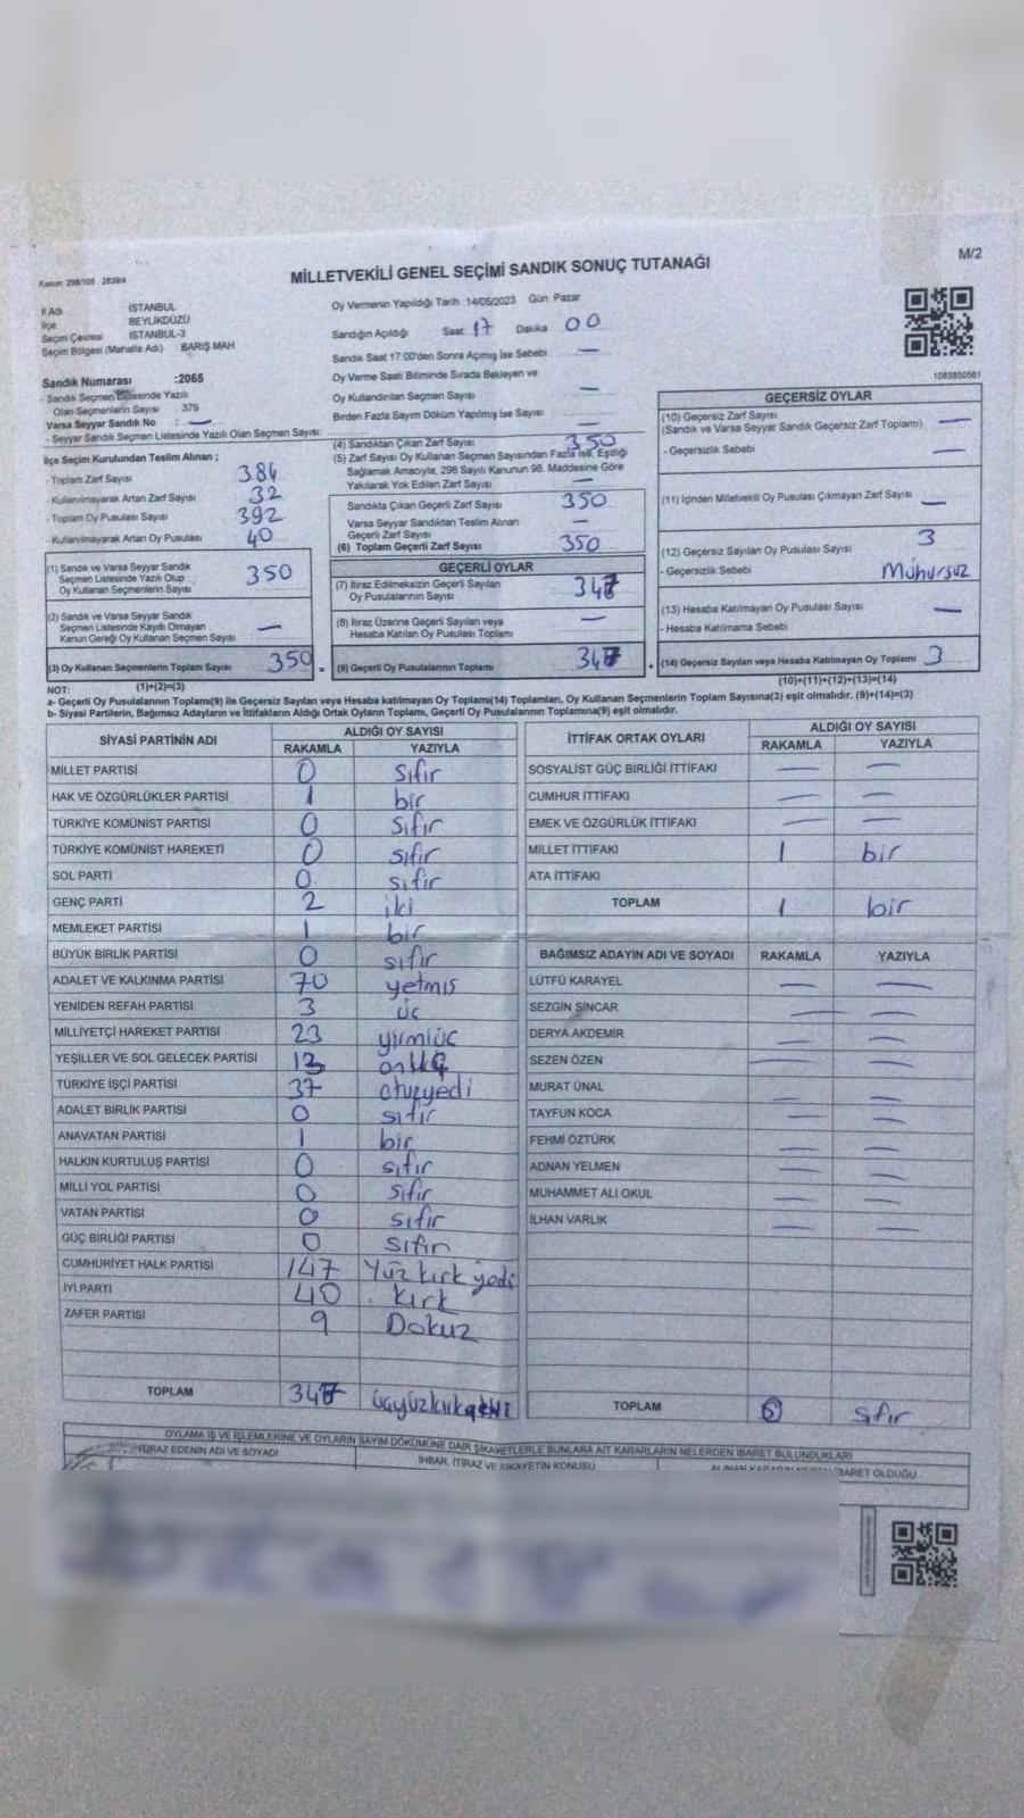 M/2
MİLLETVEKİLİ GENEL SEÇİMİ SANDIK SONUÇ TUTANAĞI
İl Adı İSTANBUL
İlçe BEYLİKDÜZÜ
Seçim Çevresi İSTANBUL-3
Seçim Bölgesi (Mahalle Adı) BARIŞ MAH
Sandık Numarası :2065
- Sandık Seçmen Listesinde Yazılı
Olan Seçmenlerin Sayısı 375
Varsa Seyyar Sandık No : —
- Seyyar Sandık Seçmen Listesinde Yazılı Olan Seçmen Sayısı:
İlçe Seçim Kurulundan Teslim Alınan ;
- Toplam Zarf Sayısı 384
- Kullanılmayarak Artan Zarf Sayısı 32
- Toplam Oy Pusulası Sayısı 392
- Kullanılmayarak Artan Oy Pusulası 40
(1) Sandık ve Varsa Seyyar Sandık
Seçmen Listesinde Yazılı Olup
Oy Kullanan Seçmenlerin Sayısı 350
(2) Sandık ve Varsa Seyyar Sandık
Seçmen Listesinde Kayıtlı Olmayan
Kanun Gereği Oy Kullanan Seçmen Sayısı —
(3) Oy Kullanan Seçmenlerin Toplam Sayısı 350
(1)+(2)=(3)
Oy Vermenin Yapıldığı Tarih 14/05/2023 Gün Pazar
Sandığın Açıldığı Saat 17 Dakika 00
Sandık Saat 17:00'den Sonra Açılmış İse Sebebi —
Oy Verme Saati Bitiminde Sırada Bekleyen ve
Oy Kullandırılan Seçmen Sayısı —
Birden Fazla Sayım Döküm Yapılmış İse Sayısı —
(4) Sandıktan Çıkan Zarf Sayısı 350
(5) Zarf Sayısı Oy Kullanan Seçmen Sayısından Fazla ise, Eşitliği
Sağlamak Amacıyla, 298 Sayılı Kanunun 98. Maddesine Göre
Yakılarak Yok Edilen Zarf Sayısı —
Sandıkta Çıkan Geçerli Zarf Sayısı 350
Varsa Seyyar Sandıktan Teslim Alınan
Geçerli Zarf Sayısı —
(6) Toplam Geçerli Zarf Sayısı 350
GEÇERLİ OYLAR
(7) İtiraz Edilmeksizin Geçerli Sayılan
Oy Pusulalarının Sayısı 347
(8) İtiraz Üzerine Geçerli Sayılan veya
Hesaba Katılan Oy Pusulası Toplamı —
(9) Geçerli Oy Pusulalarının Toplamı 347
1083850561
GEÇERSİZ OYLAR
(10) Geçersiz Zarf Sayısı
(Sandık ve Varsa Seyyar Sandık Geçersiz Zarf Toplamı) —
- Geçersizlik Sebebi —
(11) İçinden Milletvekili Oy Pusulası Çıkmayan Zarf Sayısı —
(12) Geçersiz Sayılan Oy Pusulası Sayısı 3
- Geçersizlik Sebebi Mühürsüz
(13) Hesaba Katılmayan Oy Pusulası Sayısı —
- Hesaba Katılmama Sebebi
(14) Geçersiz Sayılan veya Hesaba Katılmayan Oy Toplamı 3
(10)+(11)+(12)+(13)=(14)
NOT:
a- Geçerli Oy Pusulalarının Toplamı(9) ile Geçersiz Sayılan veya Hesaba katılmayan Oy Toplamı(14) Toplamları, Oy Kullanan Seçmenlerin Toplam Sayısına(3) eşit olmalıdır. (9)+(14)=(3)
b- Siyasi Partilerin, Bağımsız Adayların ve İttifakların Aldığı Ortak Oyların Toplamı, Geçerli Oy Pusulalarının Toplamına(9) eşit olmalıdır.
SİYASİ PARTİNİN ADI ALDIĞI OY SAYISI
RAKAMLA YAZIYLA
MİLLET PARTİSİ 0 sıfır
HAK VE ÖZGÜRLÜKLER PARTİSİ 1 bir
TÜRKİYE KOMÜNİST PARTİSİ 0 sıfır
TÜRKİYE KOMÜNİST HAREKETİ 0 sıfır
SOL PARTİ 0 sıfır
GENÇ PARTİ 2 iki
MEMLEKET PARTİSİ 1 bir
BÜYÜK BİRLİK PARTİSİ 0 sıfır
ADALET VE KALKINMA PARTİSİ 70 yetmiş
YENİDEN REFAH PARTİSİ 3 üç
MİLLİYETÇİ HAREKET PARTİSİ 23 yirmiüç
YEŞİLLER VE SOL GELECEK PARTİSİ
TÜRKİYE İŞÇİ PARTİSİ 37 otuzyedi
ADALET BİRLİK PARTİSİ 0 sıfır
ANAVATAN PARTİSİ 1 bir
HALKIN KURTULUŞ PARTİSİ 0 sıfır
MİLLİ YOL PARTİSİ 0 sıfır
VATAN PARTİSİ 0 sıfır
GÜÇ BİRLİĞİ PARTİSİ 0 sıfır
CUMHURİYET HALK PARTİSİ 147 Yüz kırk yedi
İYİ PARTİ 40 kırk
ZAFER PARTİSİ 9 Dokuz
TOPLAM 347
İTTİFAK ORTAK OYLARI ALDIĞI OY SAYISI
RAKAMLA YAZIYLA
SOSYALİST GÜÇ BİRLİĞİ İTTİFAKI — —
CUMHUR İTTİFAKI — —
EMEK VE ÖZGÜRLÜK İTTİFAKI — —
MİLLET İTTİFAKI 1 bir
ATA İTTİFAKI
TOPLAM 1 bir
BAĞIMSIZ ADAYIN ADI VE SOYADI RAKAMLA YAZIYLA
LÜTFÜ KARAYEL — —
SEZGİN SİNCAR — —
DERYA AKDEMİR — —
SEZEN ÖZEN — —
MURAT ÜNAL — —
TAYFUN KOCA — —
FEHMİ ÖZTÜRK — —
ADNAN YELMEN — —
MUHAMMET ALİ OKUL — —
İLHAN VARLIK — —
TOPLAM sıfır
OYLAMA İŞ VE İŞLEMLERİNE VE OYLARIN SAYIM DÖKÜMÜNE DAİR ŞİKAYETLERLE BUNLARA AİT KARARLARIN NELERDEN İBARET BULUNDUKLARI
İTİRAZ EDENİN ADI VE SOYADI
İHBAR, İTİRAZ VE ŞİKAYETİN KONUSU
İBARET OLDUĞU